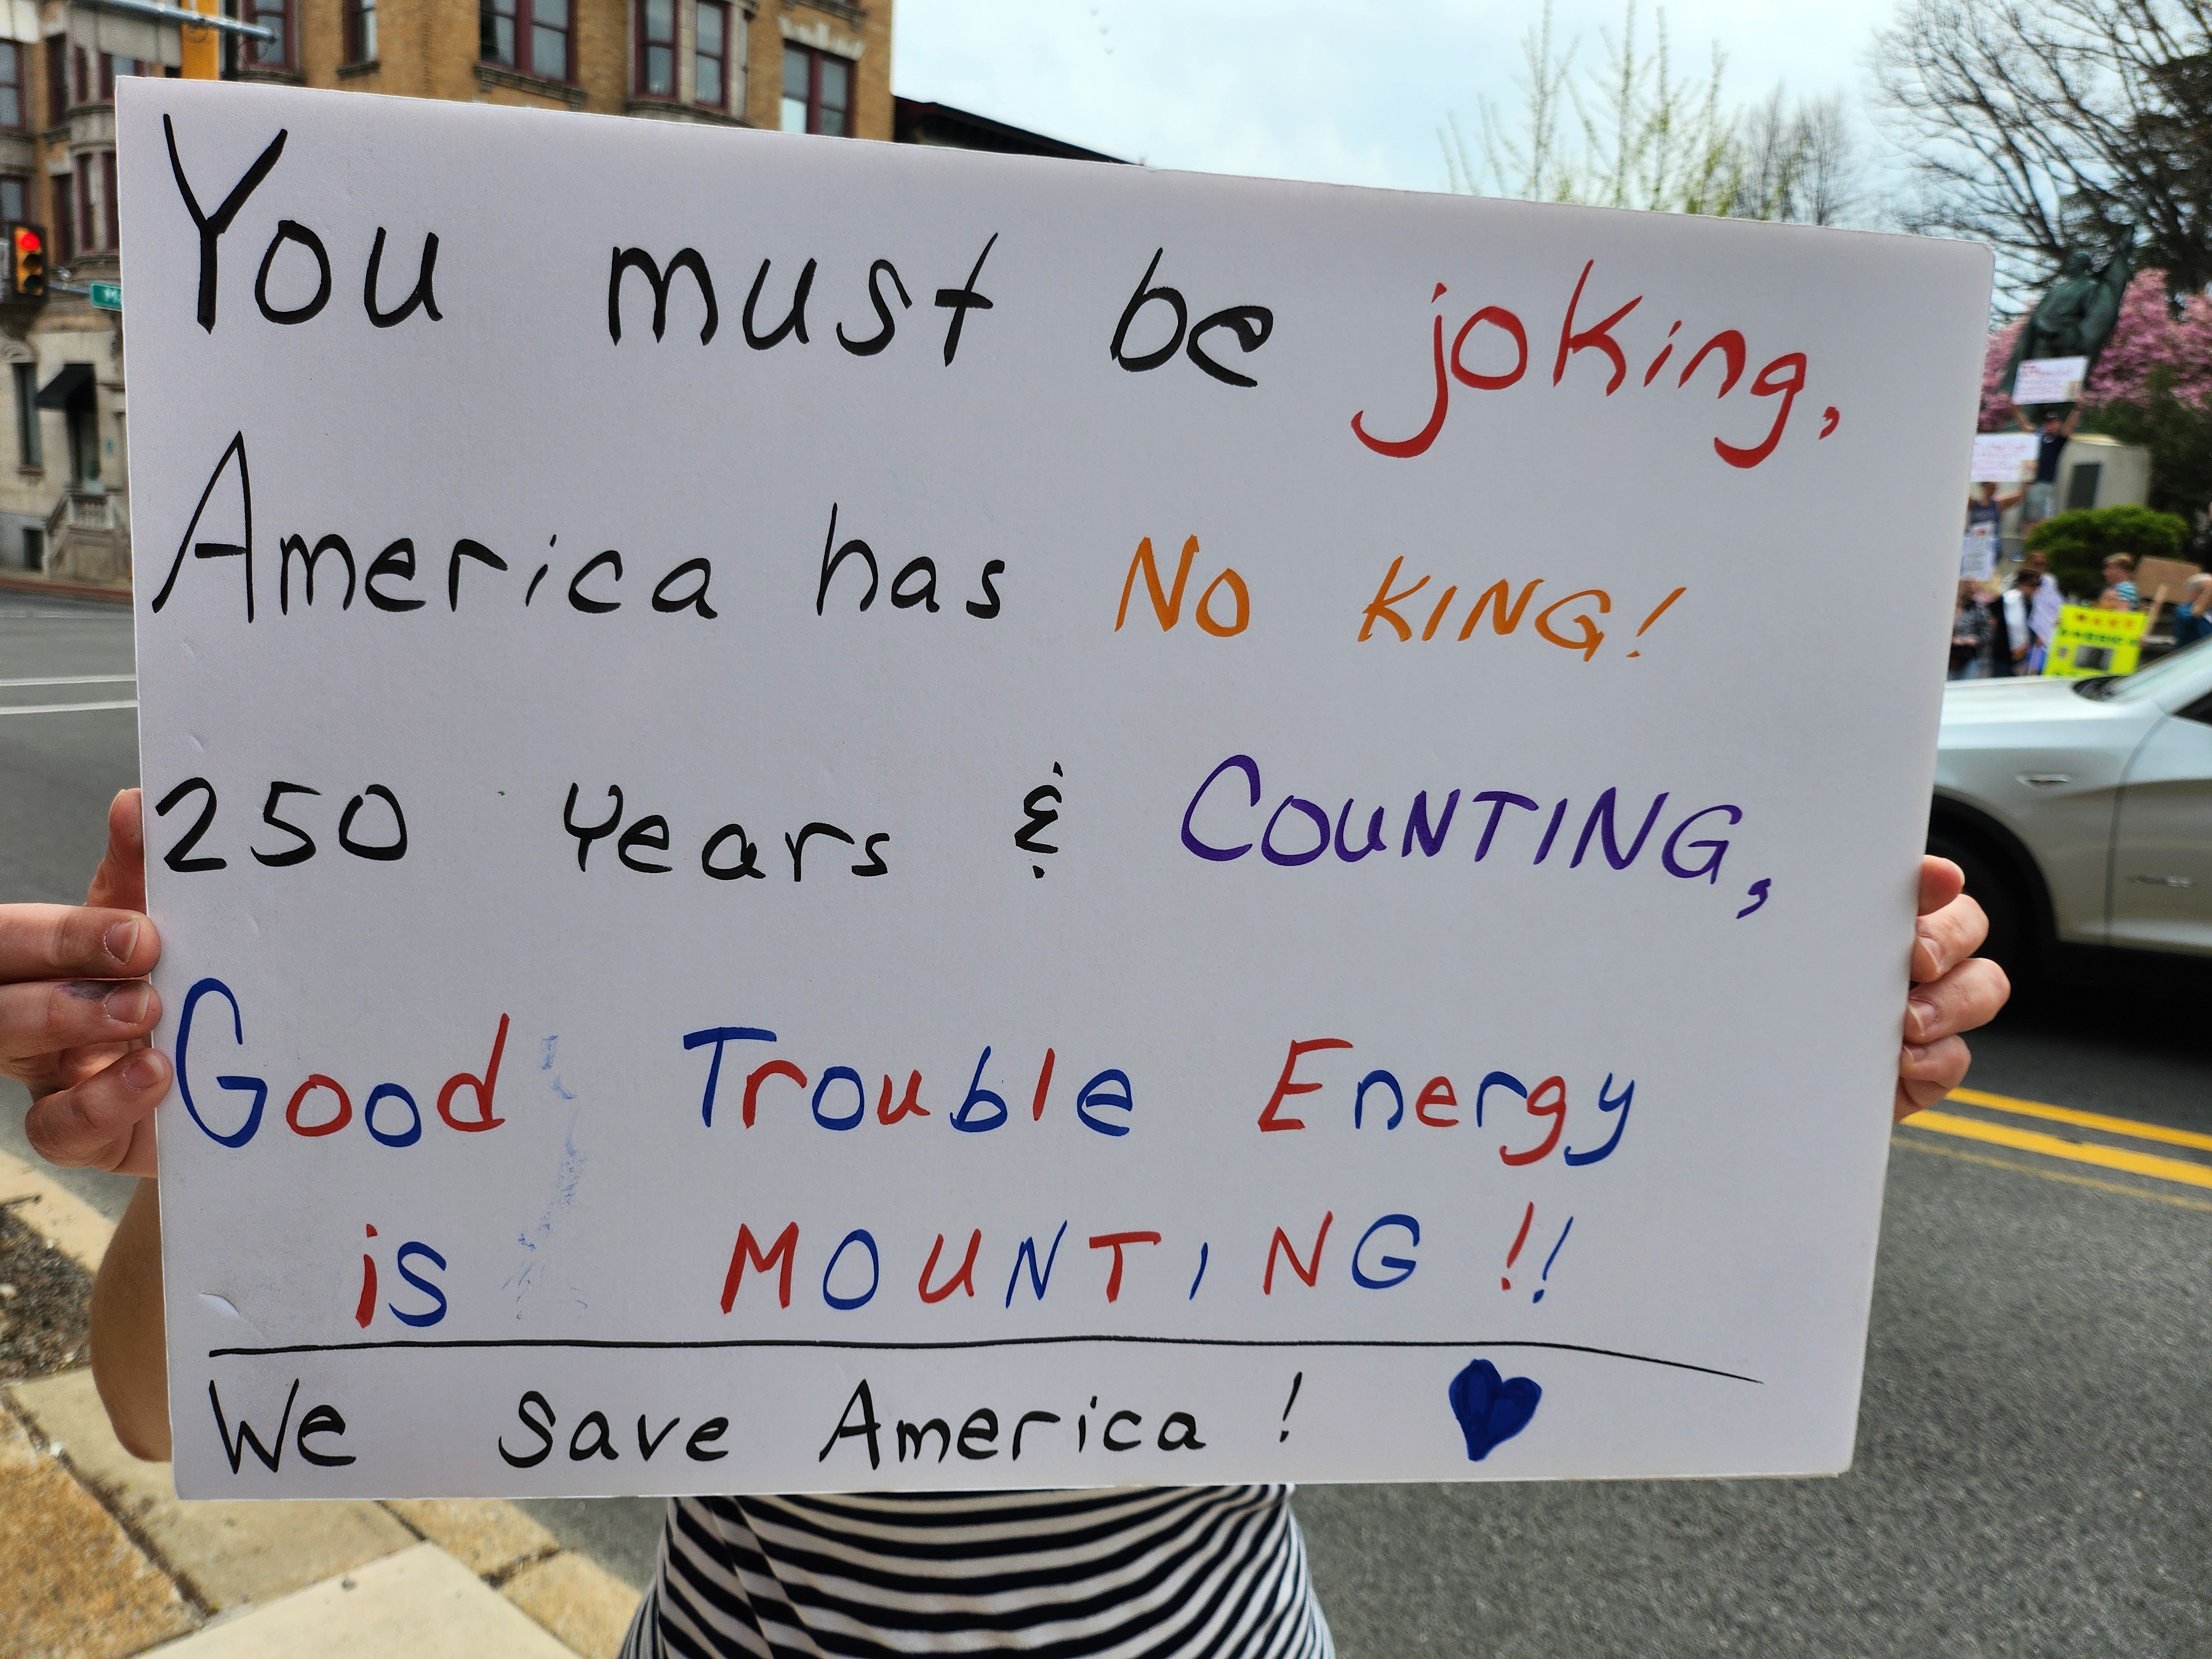 You must be joking,
America has No KING!
250 Years & COUNTING,
Good Trouble Energy
is MOUNTING!!
We save America!